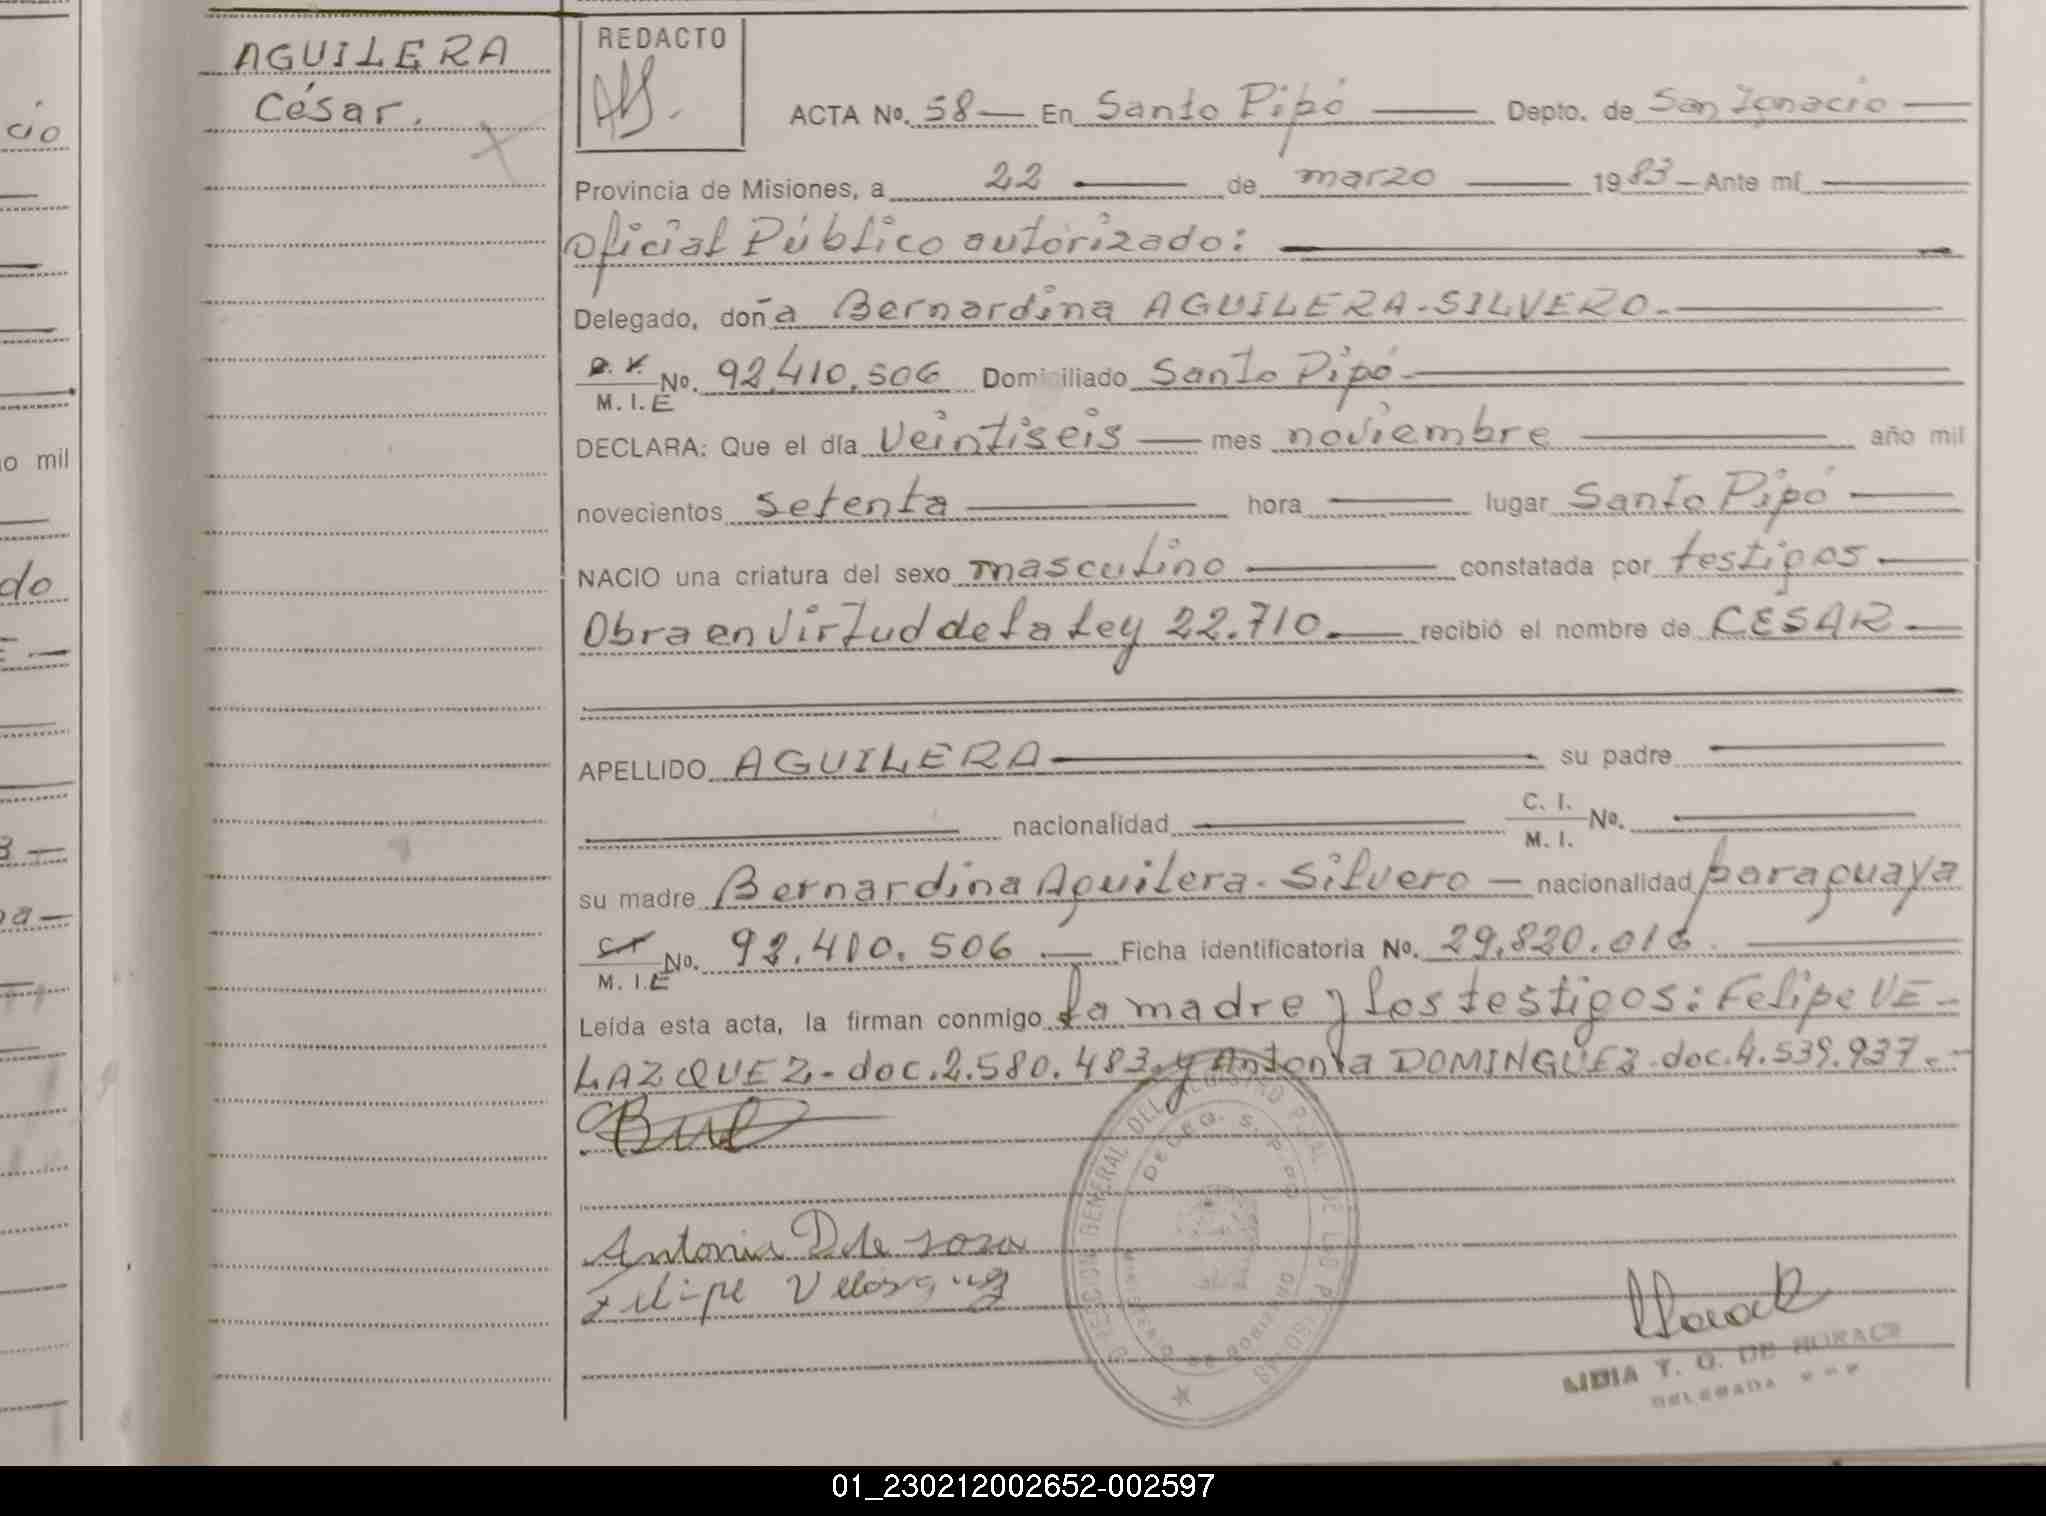 AGUILERA
César.
REDACTO
ACTA Nº. 58 — En Santo Pipó — Depto. de San Ignacio —
Provincia de Misiones, a 22 — de marzo — 1983 — Ante mí —
Oficial Público autorizado: —
Delegado, doña Bernardina AGUILERA-SILVERO. —
No. 92.410.506 Domiciliado Santo Pipó —
M. I. E
DECLARA: Que el día veintiseis — mes noviembre — año mil
novecientos setenta — hora — lugar Santo Pipó —
NACIO una criatura del sexo masculino — constatada por testigos —
Obra en virtud de la Ley 22.710. — recibió el nombre de CESAR —
APELLIDO AGUILERA — su padre —
— nacionalidad — C. I. No. —
M. I.
su madre Bernardina Aguilera-Silvero — nacionalidad paraguaya
C. I. No. 92.410.506 — Ficha identificatoria Nº. 29.820.016. —
M. I. E
Leída esta acta, la firman conmigo la madre y los testigos: Felipe VE-
LAZQUEZ- doc. 2.580.483. y Antonia DOMINGUEZ- doc. 4.539.937. -
Antonia D de sosa
Felipe Velasquez
DIRECCION GENERAL DEL REGISTRO PCIAL. DE LAS PERSONAS
DELEG. S. PIPO
MINISTERIO DE GOBIERNO
LIDIA T. G. DE
DELEGADA
01_230212002652-002597